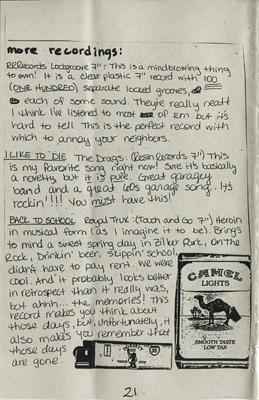 more recordings:
RRRecords Lockgroove 7": This is a mindblowing thing
to own! It is a clear plastic 7" record with 100
(ONE HUNDRED) separate locked grooves,
each of some sound. They're really neat!
I think I've listened to most of em but it's
hard to tell. This is the perfect record with
which to annoy your neighbors.
I LIKE TO DIE The Drags: (Resin Records 7") This
is my favorite song right now! Sure it's basically
a novelty but it is pure. Great garagey
band and a great 60s garage song. It's
rockin'!!! You must have this!
BACK TO SCHOOL Royal Trux: (Touch and Go 7") Heroin
in musical form (as I imagine it to be). Brings
to mind a sweet spring day in Zilker Park, On The
Rock, Drinkin' beer, skippin' school
didn't have to pay rent. We were
cool. And it probably looks better
in retrospect than it really was,
but ahhh... the memories! This
record makes you think about
those days, but, unfortunately, it
also makes you remember that
those days
are gone.
CAMEL
LIGHTS
SMOOTH TASTE
LOW TAR
21